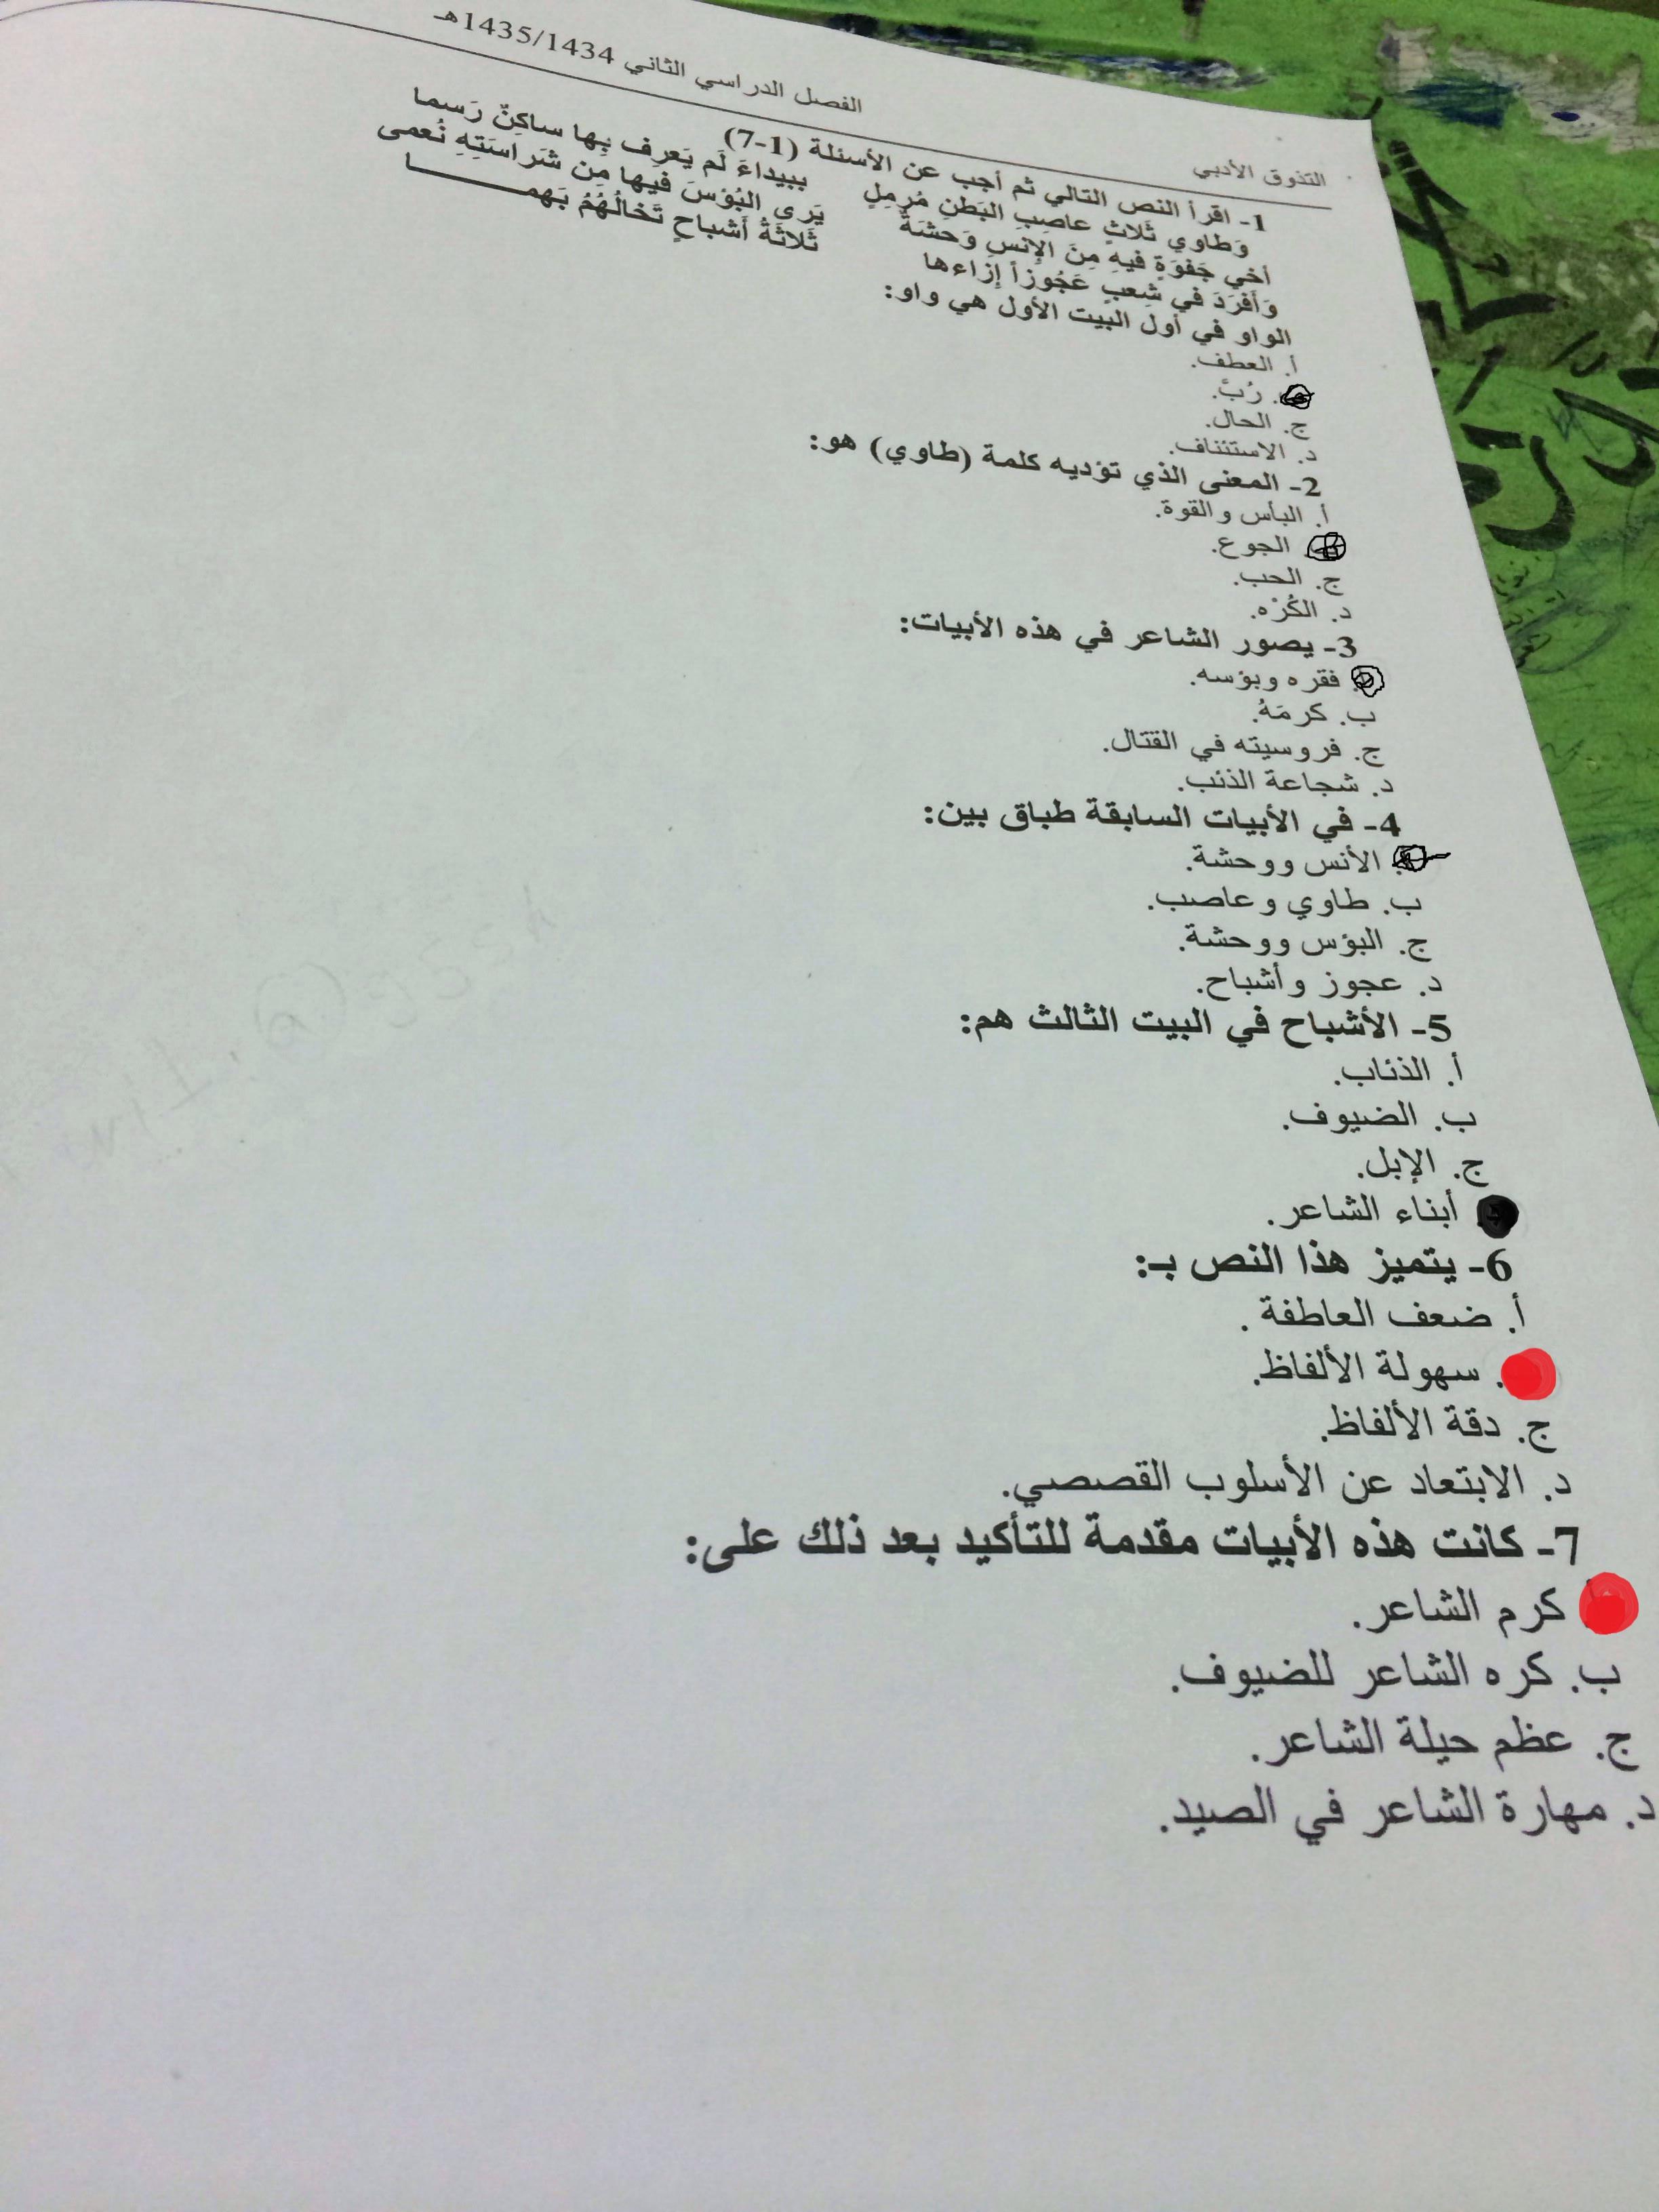 التذوق الأدبي
الفصل الدراسي الثاني 1435/1434هـ
1- اقرأ النص التالي ثم أجب عن الأسئلة (1-7)
وَطاوي ثَلاثٍ عاصِبِ البَطنِ مُرمِلٍ ببيداءَ لَم يَعرِف بِها ساكِنٌ رَسما
أخي جَفوَةٍ فيهِ مِنَ الإِنسِ وَحشَةٌ يَرى البُؤسَ فيها مِن شَراسَتِهِ نُعمى
وَأَفرَدَ في شِعبٍ عَجُوزاً إزاءها ثَلاثَةُ أَشباحٍ تَخالُهُمُ بَهمـــــــا
الواو في أول البيت الأول هي واو:
أ. العطف.
. رُبَّ.
ج. الحال.
د. الاستئناف.
2- المعنى الذي تؤديه كلمة (طاوي) هو:
أ. البأس والقوة.
. الجوع.
ج. الحب.
د. الكُرْه.
3- يصور الشاعر في هذه الأبيات:
فقره وبؤسه.
ب. كرمَهُ.
ج. فروسيته في القتال.
د. شجاعة الذئب.
4- في الأبيات السابقة طباق بين:
الأنس ووحشة.
ب. طاوي وعاصب.
ج. البؤس ووحشة.
د. عجوز وأشباح.
5- الأشباح في البيت الثالث هم:
أ. الذئاب.
ب. الضيوف.
ج. الإبل.
أبناء الشاعر.
6- يتميز هذا النص بـ:
أ. ضعف العاطفة .
. سهولة الألفاظ.
ج. دقة الألفاظ.
د. الابتعاد عن الأسلوب القصصي.
7- كانت هذه الأبيات مقدمة للتأكيد بعد ذلك على:
كرم الشاعر.
ب. كره الشاعر للضيوف.
ج. عظم حيلة الشاعر.
د. مهارة الشاعر في الصيد.